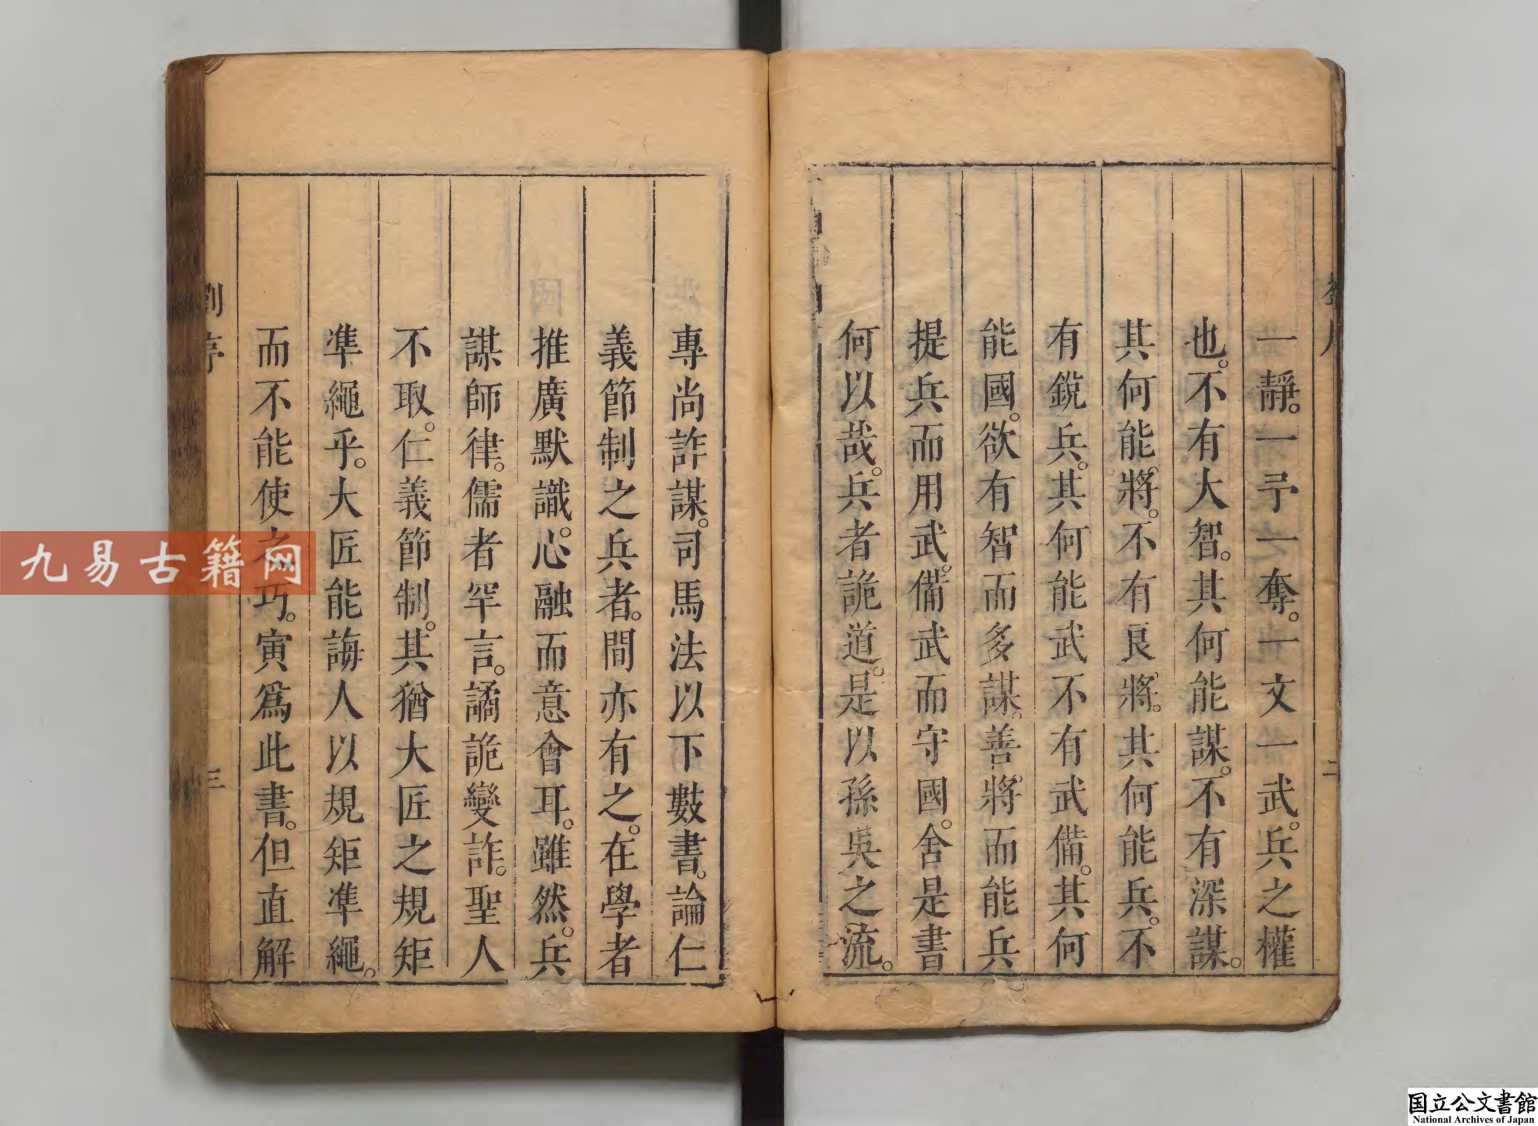 一靜。一予一奪。一文一武。兵之權
也。不有大智。其何能謀。不有深謀。
其何能將。不有良將。其何能兵。不
有銳兵。其何能武。不有武備。其何
能國。欲有智而多謀。善將而能兵。
提兵而用武。備武而守國。舍是書
何以哉。兵者詭道。是以孫吳之流。
專尚詐謀。司馬法以下數書。論仁
義節制之兵者。間亦有之。在學者
推廣默識。心融而意會耳。雖然。兵
謀師律。儒者罕言。譎詭變詐。聖人
不取。仁義節制。其猶大匠之規矩
準繩乎。大匠能誨人以規矩準繩。
而不能使之巧。寅爲此書。但直解
三
九易古籍网
国立公文書館
National Archives of Japan